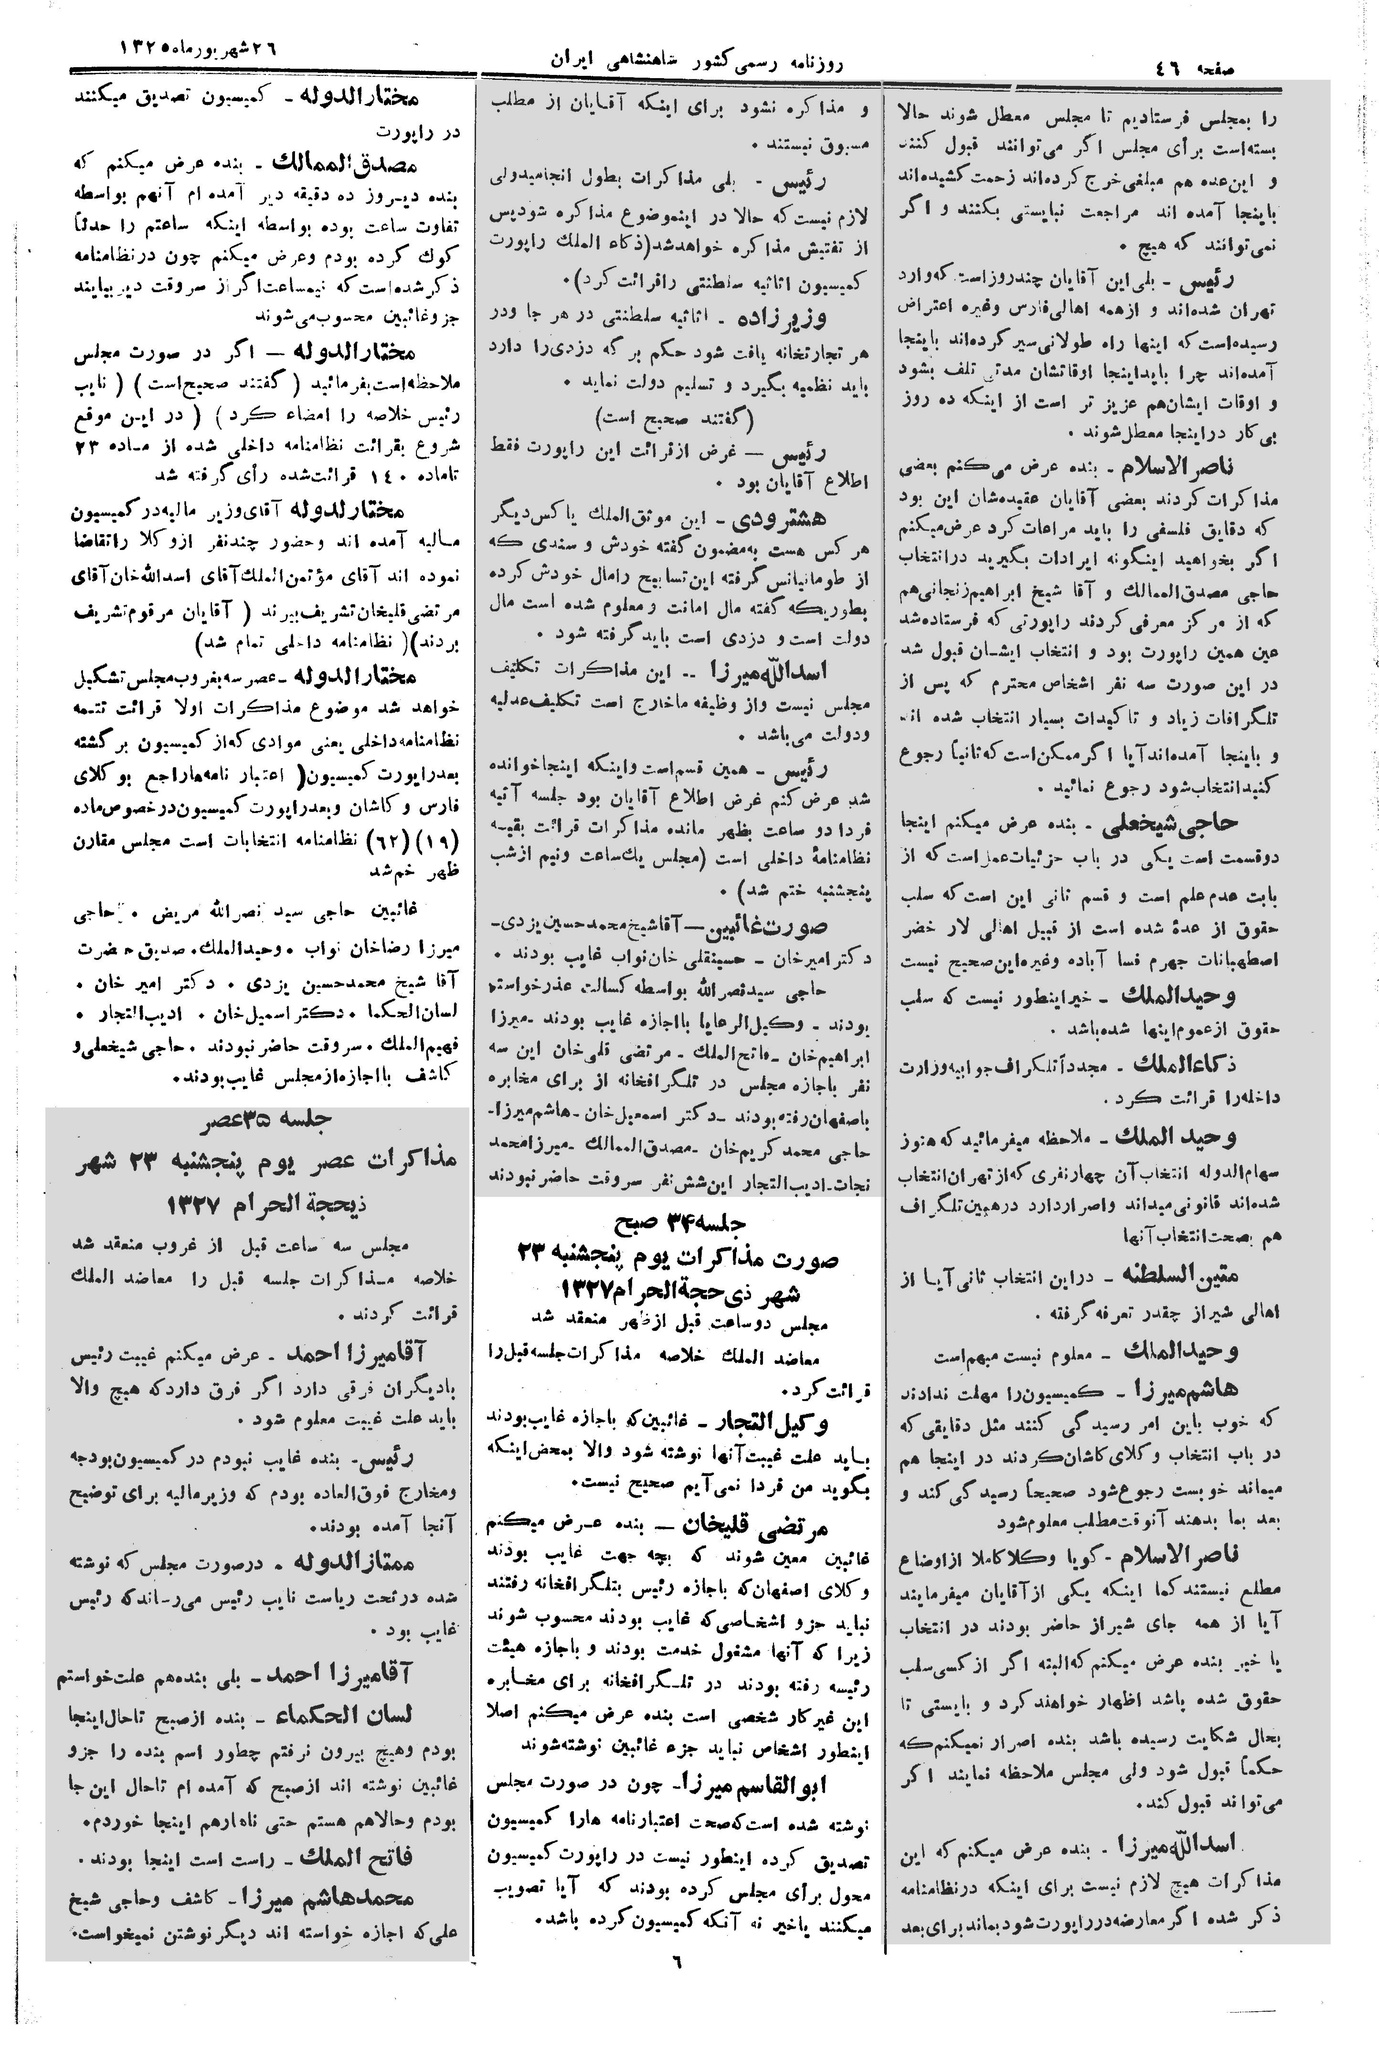 صفحه ٤٦
روزنامه رسمی کشور شاهنشاهی ایران
٢٦ شهریور ماه ١٣٢٥
را بمجلس فرستادیم تا مجلس معطل شوند حالا
بسته است برأی مجلس اگر می‌توانند قبول کنند
و این عده هم مبلغی خرج کرده‌اند زحمت کشیده‌اند
باینجا آمده اند مراجعت نبایستی بکنند و اگر
نمی‌توانند که هیچ .
رئیس - بلی این آقایان چند روز است که وارد
تهران شده‌اند و از همه اهالی فارس وغیره اعتراض
رسیده است که اینها راه طولانی سیر کرده‌اند باینجا
آمده‌اند چرا باید اینجا اوقاتشان مدتی تلف بشود
و اوقات ایشان هم عزیز تر است از اینکه ده روز
بی کار در اینجا معطل شوند .
ناصر الاسلام - بنده عرض می‌کنم بعضی
مذاکرات کردند بعضی آقایان عقیده‌شان این بود
که دقایق فلسفی را باید مراعات کرد عرض میکنم
اگر بخواهید اینگونه ایرادات بگیرید در انتخاب
حاجی مصدق الممالک و آقا شیخ ابراهیم زنجانی هم
که از مرکز معرفی کردند راپورتی که فرستاده شد
عین همین راپورت بود و انتخاب ایشان قبول شد
در این صورت سه نفر اشخاص محترم که پس از
تلگرافات زیاد و تاکیدات بسیار انتخاب شده اند
و باینجا آمده‌اند آیا اگر ممکن است که ثانیاً رجوع
کنید انتخاب شود رجوع نمائید .
حاجی شیخعلی - بنده عرض میکنم اینجا
دو قسمت است یکی در باب جزئیات عمل است که از
بابت عدم علم است و قسم ثانی این است که سلب
حقوق از عدهٔ شده است از قبیل اهالی لار خضر
اصطهبانات جهرم فسا آباده وغیره این صحیح نیست
وحید الملک - خیر اینطور نیست که سلب
حقوق از عموم اینها شده باشد .
ذکاء الملک - مجدداً تلگراف جوابیه وزارت
داخله را قرائت کرد .
وحید الملک - ملاحظه میفرمائید که هنوز
سهام الدوله انتخاب آن چهار نفری که از تهران انتخاب
شده‌اند قانونی میداند و اصرار دارد در همین تلگراف
هم بصحت انتخاب آنها
متین السلطنه - در این انتخاب ثانی آیا از
اهالی شیراز چقدر تعرفه گرفته .
وحید الملک - معلوم نیست مبهم است
هاشم میرزا - کمیسیون را مهلت ندادند
که خوب باین امر رسیدگی کنند مثل دقایقی که
در باب انتخاب وکلای کاشان کردند در اینجا هم
میماند خوبست رجوع شود صحیحاً رسیدگی کند و
بعد بما بدهند آنوقت مطلب معلوم شود
ناصر الاسلام - گویا وکلا کاملا از اوضاع
مطلع نیستند کما اینکه یکی از آقایان میفرمایند
آیا از همه جای شیراز حاضر بودند در انتخاب
یا خیر بنده عرض میکنم که البته اگر از کسی سلب
حقوق شده باشد اظهار خواهند کرد و بایستی تا
بحال شکایت رسیده باشد بنده اصرار نمیکنم که
حکماً قبول شود ولی مجلس ملاحظه نمایند اگر
می‌تواند قبول کند .
اسد الله میرزا - بنده عرض میکنم که این
مذاکرات هیچ لازم نیست برای اینکه در نظامنامه
ذکر شده اگر معارضه در راپورت شود بماند برای بعد
و مذاکره نشود برای اینکه آقایان از مطلب
مسبوق نیستند .
رئیس - بلی مذاکرات بطول انجامید ولی
لازم نیست که حالا در اینموضوع مذاکره شود پس
از تفتیش مذاکره خواهد شد (ذکاء الملک راپورت
کمیسیون اثاثیه سلطنتی را قرائت کرد) .
وزیر زاده - اثاثیه سلطنتی در هر جا ودر
هر تجارتخانه یافت شود حکم برگه دزدی را دارد
باید نظمیه بگیرد و تسلیم دولت نماید .
(گفتند صحیح است)
رئیس - غرض از قرائت این راپورت فقط
اطلاع آقایان بود .
هشترودی - این موثق الملک یا کس دیگر
هر کس هست به مضمون گفته خودش و سندی که
از طومانیانس گرفته این تسابیح را مال خودش کرده
بطوریکه گفته مال امانت و معلوم شده است مال
دولت است و دزدی است باید گرفته شود .
اسد الله میرزا - این مذاکرات تکلیف
مجلس نیست و از وظیفه ما خارج است تکلیف عدلیه
و دولت می‌باشد .
رئیس - همین قسم است و اینکه اینجا خوانده
شد عرض کنم غرض اطلاع آقایان بود جلسه آتیه
فردا دو ساعت بظهر مانده مذاکرات قرائت بقیه
نظامنامهٔ داخلی است (مجلس یک ساعت و نیم از شب
پنجشنبه ختم شد) .
صورت غائبین - آقا شیخ محمد حسین یزدی -
دکتر امیر خان - حسینقلی خان نواب غایب بودند .
حاجی سید نصر الله بواسطه کسالت عذر خواسته
بودند - وکیل الرعایا با اجازه غایب بودند - میرزا
ابراهیم خان - فاتح الملک - مرتضی قلی خان این سه
نفر با اجازه مجلس در تلگرافخانه از برای مخابره
باصفهان رفته بودند - دکتر اسمعیل خان - هاشم میرزا -
حاجی محمد کریم خان - مصدق الممالک - میرزا محمد
نجات - ادیب التجار این شش نفر سر وقت حاضر نبودند
جلسه ٣٤ صبح
صورت مذاکرات یوم پنجشنبه ٢٣
شهر ذی حجة الحرام ١٣٢٧
مجلس دو ساعت قبل از ظهر منعقد شد
معاضد الملک خلاصه مذاکرات جلسه قبل را
قرائت کرد .
وکیل التجار - غائبین که با اجازه غایب بودند
باید علت غیبت آنها نوشته شود والا بمحض اینکه
بگوید من فردا نمی‌آیم صحیح نیست .
مرتضی قلیخان - بنده عرض میکنم
غائبین معین شوند که بچه جهت غایب بودند
وکلای اصفهان که با اجازه رئیس بتلگرافخانه رفتند
نباید جزو اشخاصی که غایب بودند محسوب شوند
زیرا که آنها مشغول خدمت بودند و با اجازه هیئت
رئیسه رفته بودند در تلگرافخانه برای مخابره
این غیر کار شخصی است بنده عرض میکنم اصلا
اینطور اشخاص نباید جزء غائبین نوشته شوند
ابو القاسم میرزا - چون در صورت مجلس
نوشته شده است که صحت اعتبارنامه ها را کمیسیون
تصدیق کرده اینطور نیست در راپورت کمیسیون
محول برأی مجلس کرده بودند که آیا تصویب
میکنند یا خیر نه آنکه کمیسیون کرده باشد .
مختار الدوله - کمیسیون تصدیق میکنند
در راپورت
مصدق الممالک - بنده عرض میکنم که
بنده دیروز ده دقیقه دیر آمده ام آنهم بواسطه
تفاوت ساعت بوده بواسطه اینکه ساعتم را
کوک کرده بودم و عرض میکنم چون در نظامنامه
ذکر شده است که نیمساعت اگر از سر وقت دیر بیایند
جزو غائبین محسوب می‌شوند
مختار الدوله - اگر در صورت مجلس
ملاحظه است بفرمائید ( گفتند صحیح است ) ( نایب
رئیس خلاصه را امضاء کرد ) ( در این موقع
شروع بقرائت نظامنامه داخلی شده از ماده ٢٣
تا ماده ١٤٠ قرائت شده رأی گرفته شد
مختار لدوله آقای وزیر مالیه در کمیسیون
مالیه آمده اند و حضور چند نفر از وکلا را تقاضا
نموده اند آقای مؤتمن الملک آقای اسد الله خان آقای
مرتضی قلیخان تشریف ببرند ( آقایان مرقوم تشریف
بردند ) ( نظامنامه داخلی تمام شد )
مختار الدوله - عصر سه بغروب مجلس تشکیل
خواهد شد موضوع مذاکرات اولا قرائت تتمه
نظامنامه داخلی یعنی موادی که از کمیسیون برگشته
بعد راپورت کمیسیون ( اعتبار نامه ها راجع بوکلای
فارس و کاشان و بعد راپورت کمیسیون در خصوص ماده
(١٩) (٦٢) نظامنامه انتخابات است مجلس مقارن
ظهر ختم شد
غائبین حاجی سید نصر الله مریض . حاجی
میرزا رضا خان نواب . وحید الملک . صدیق حضرت
آقا شیخ محمد حسین یزدی . دکتر امیر خان .
لسان الحکما . دکتر اسمعیل خان . ادیب التجار .
فهیم الملک . سر وقت حاضر نبودند . حاجی شیخعلی و
کاشف با اجازه از مجلس غایب بودند .
جلسه ٣٥ عصر
مذاکرات عصر یوم پنجشنبه ٢٣ شهر
ذیحجة الحرام ١٣٢٧
مجلس سه ساعت قبل از غروب منعقد شد
خلاصه مذاکرات جلسه قبل را معاضد الملک
قرائت کردند .
آقا میرزا احمد - عرض میکنم غیبت رئیس
با دیگران فرقی دارد اگر فرق دارد که هیچ والا
باید علت غیبت معلوم شود .
رئیس - بنده غایب نبودم در کمیسیون بودجه
و مخارج فوق العاده بودم که وزیر مالیه برای توضیح
آنجا آمده بودند .
ممتاز الدوله . در صورت مجلس که نوشته
شده در تحت ریاست نایب رئیس می‌رساند که رئیس
غایب بود .
آقا میرزا احمد - بلی بنده هم علت خواستم
لسان الحکماء - بنده از صبح تا حال اینجا
بودم و هیچ بیرون نرفتم چطور اسم بنده را جزو
غائبین نوشته اند از صبح که آمده ام تا حال این جا
بودم و حالا هم هستم حتی ناهار هم اینجا خوردم .
فاتح الملک - راست است اینجا بودند .
محمد هاشم میرزا - کاشف و حاجی شیخ
علی که اجازه خواسته اند دیگر نوشتن نمیخواست .
٦